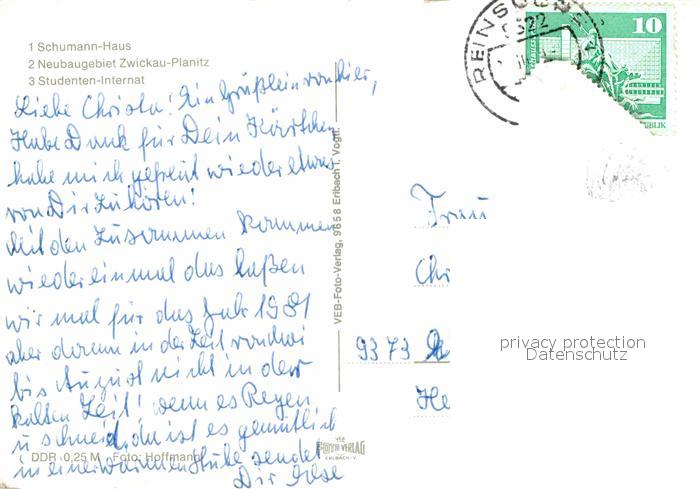 1 Schumann-Haus
2 Neubaugebiet Zwickau-Planitz
3 Studenten-Internat
Liebe Christa! Ein Grüßlein von hier,
Habe Dank für Dein Kärtchen
habe mich gefreut wieder etwas
von Dir zu hören!
Mit den Zusammen kommen
wiedereinmal das laßen
wir mal für das Jahr 1981
aber dann in der Zeit von Mai
bis August nicht in der
kalten Zeit! wenn es Regen
u schneid, da ist es gemütlich
in einer warmen Stube sendet
Dir Ilse
DDR 0,25 M Foto: Hoffmann
VEB-Foto-Verlag, 9658 Erlbach i. Vogtl.
FOTO VERLAG
ERLBACH/V
REINSDORF
10
Frau
Chr
9373
He
privacy protection
Datenschutz